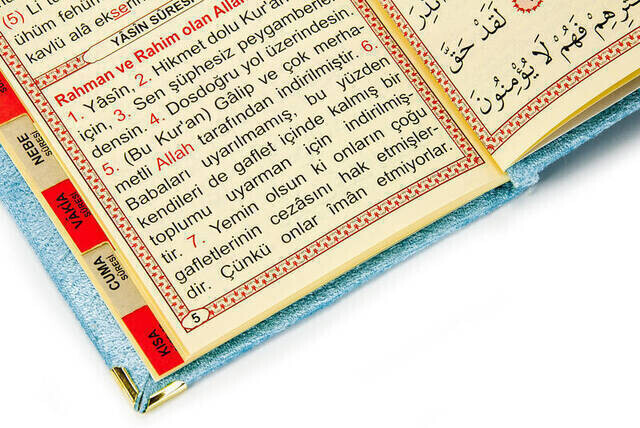 (5) Li t
ühüm fehüm
kavlü alâ ekse
YÂSÎN SÛRESİ
Rahman ve Rahim olan Allah
1. Yâsîn, 2. Hikmet dolu Kur'an
için, 3. Sen şüphesiz peygamberler-
densin. 4. Dosdoğru yol üzerindesin.
5. (Bu Kur'an) Gâlip ve çok merha-
metli Allah tarafından indirilmiştir. 6.
Babaları uyarılmamış, bu yüzden
kendileri de gaflet içinde kalmış bir
toplumu uyarman için indirilmiş-
tir. 7. Yemin olsun ki onların çoğu
gafletlerinin cezâsını hak etmişler-
dir. Çünkü onlar imân etmiyorlar.
5
لَقَدْ حَقَّ
فَهُمْ لَا يُؤْمِنُونَ
NEBE
SÛRESİ
VÂKIA
SÛRESİ
CUMA
SÛRESİ
KISA